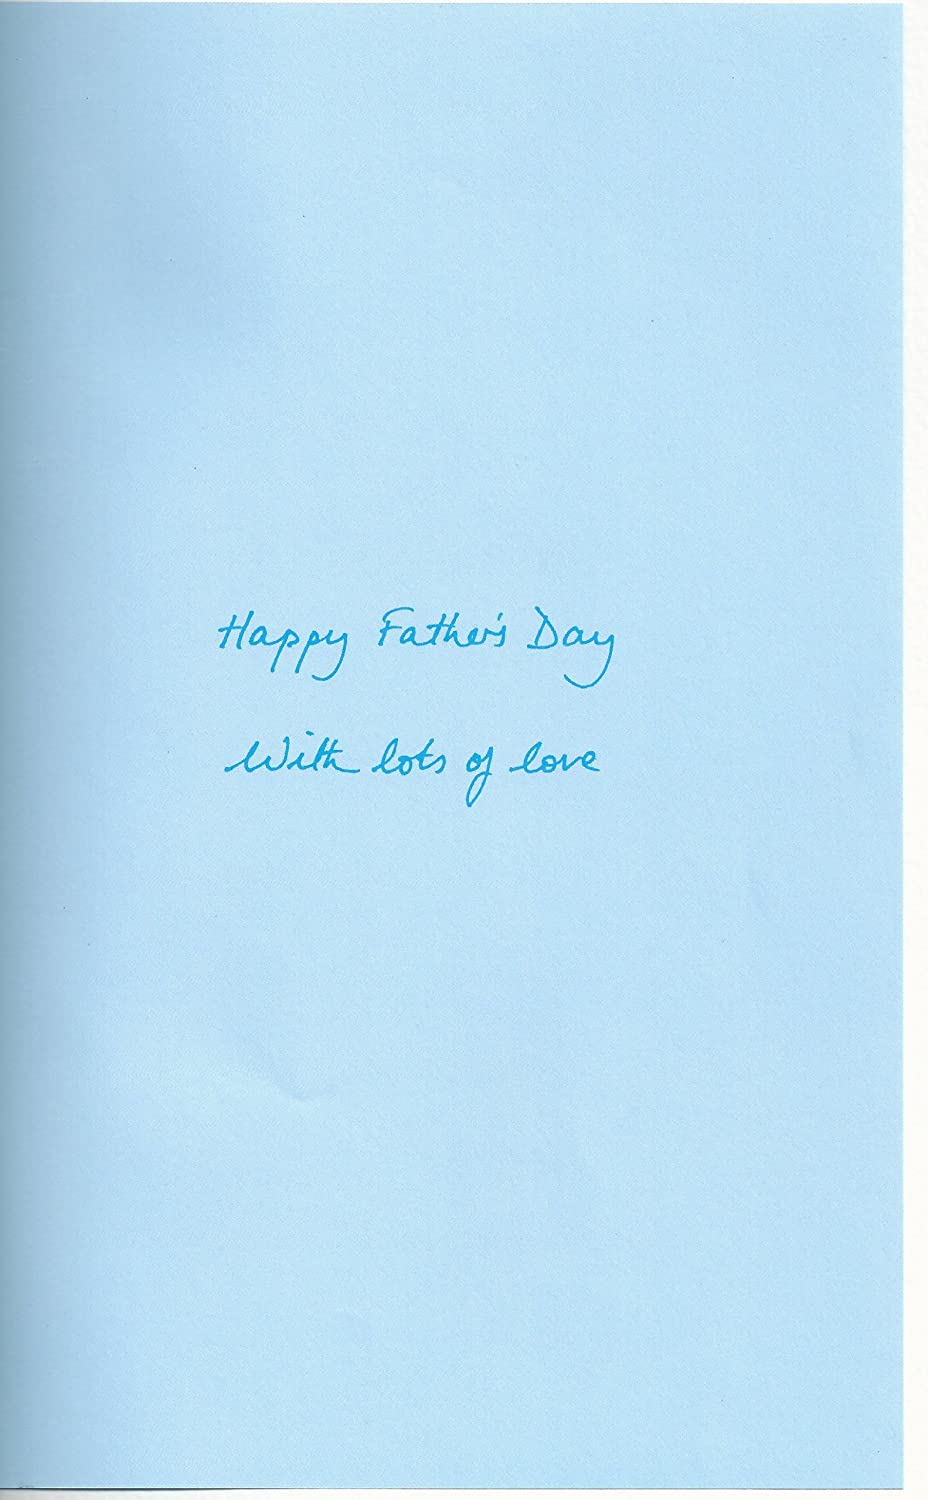 Happy Father's Day
With lots of love